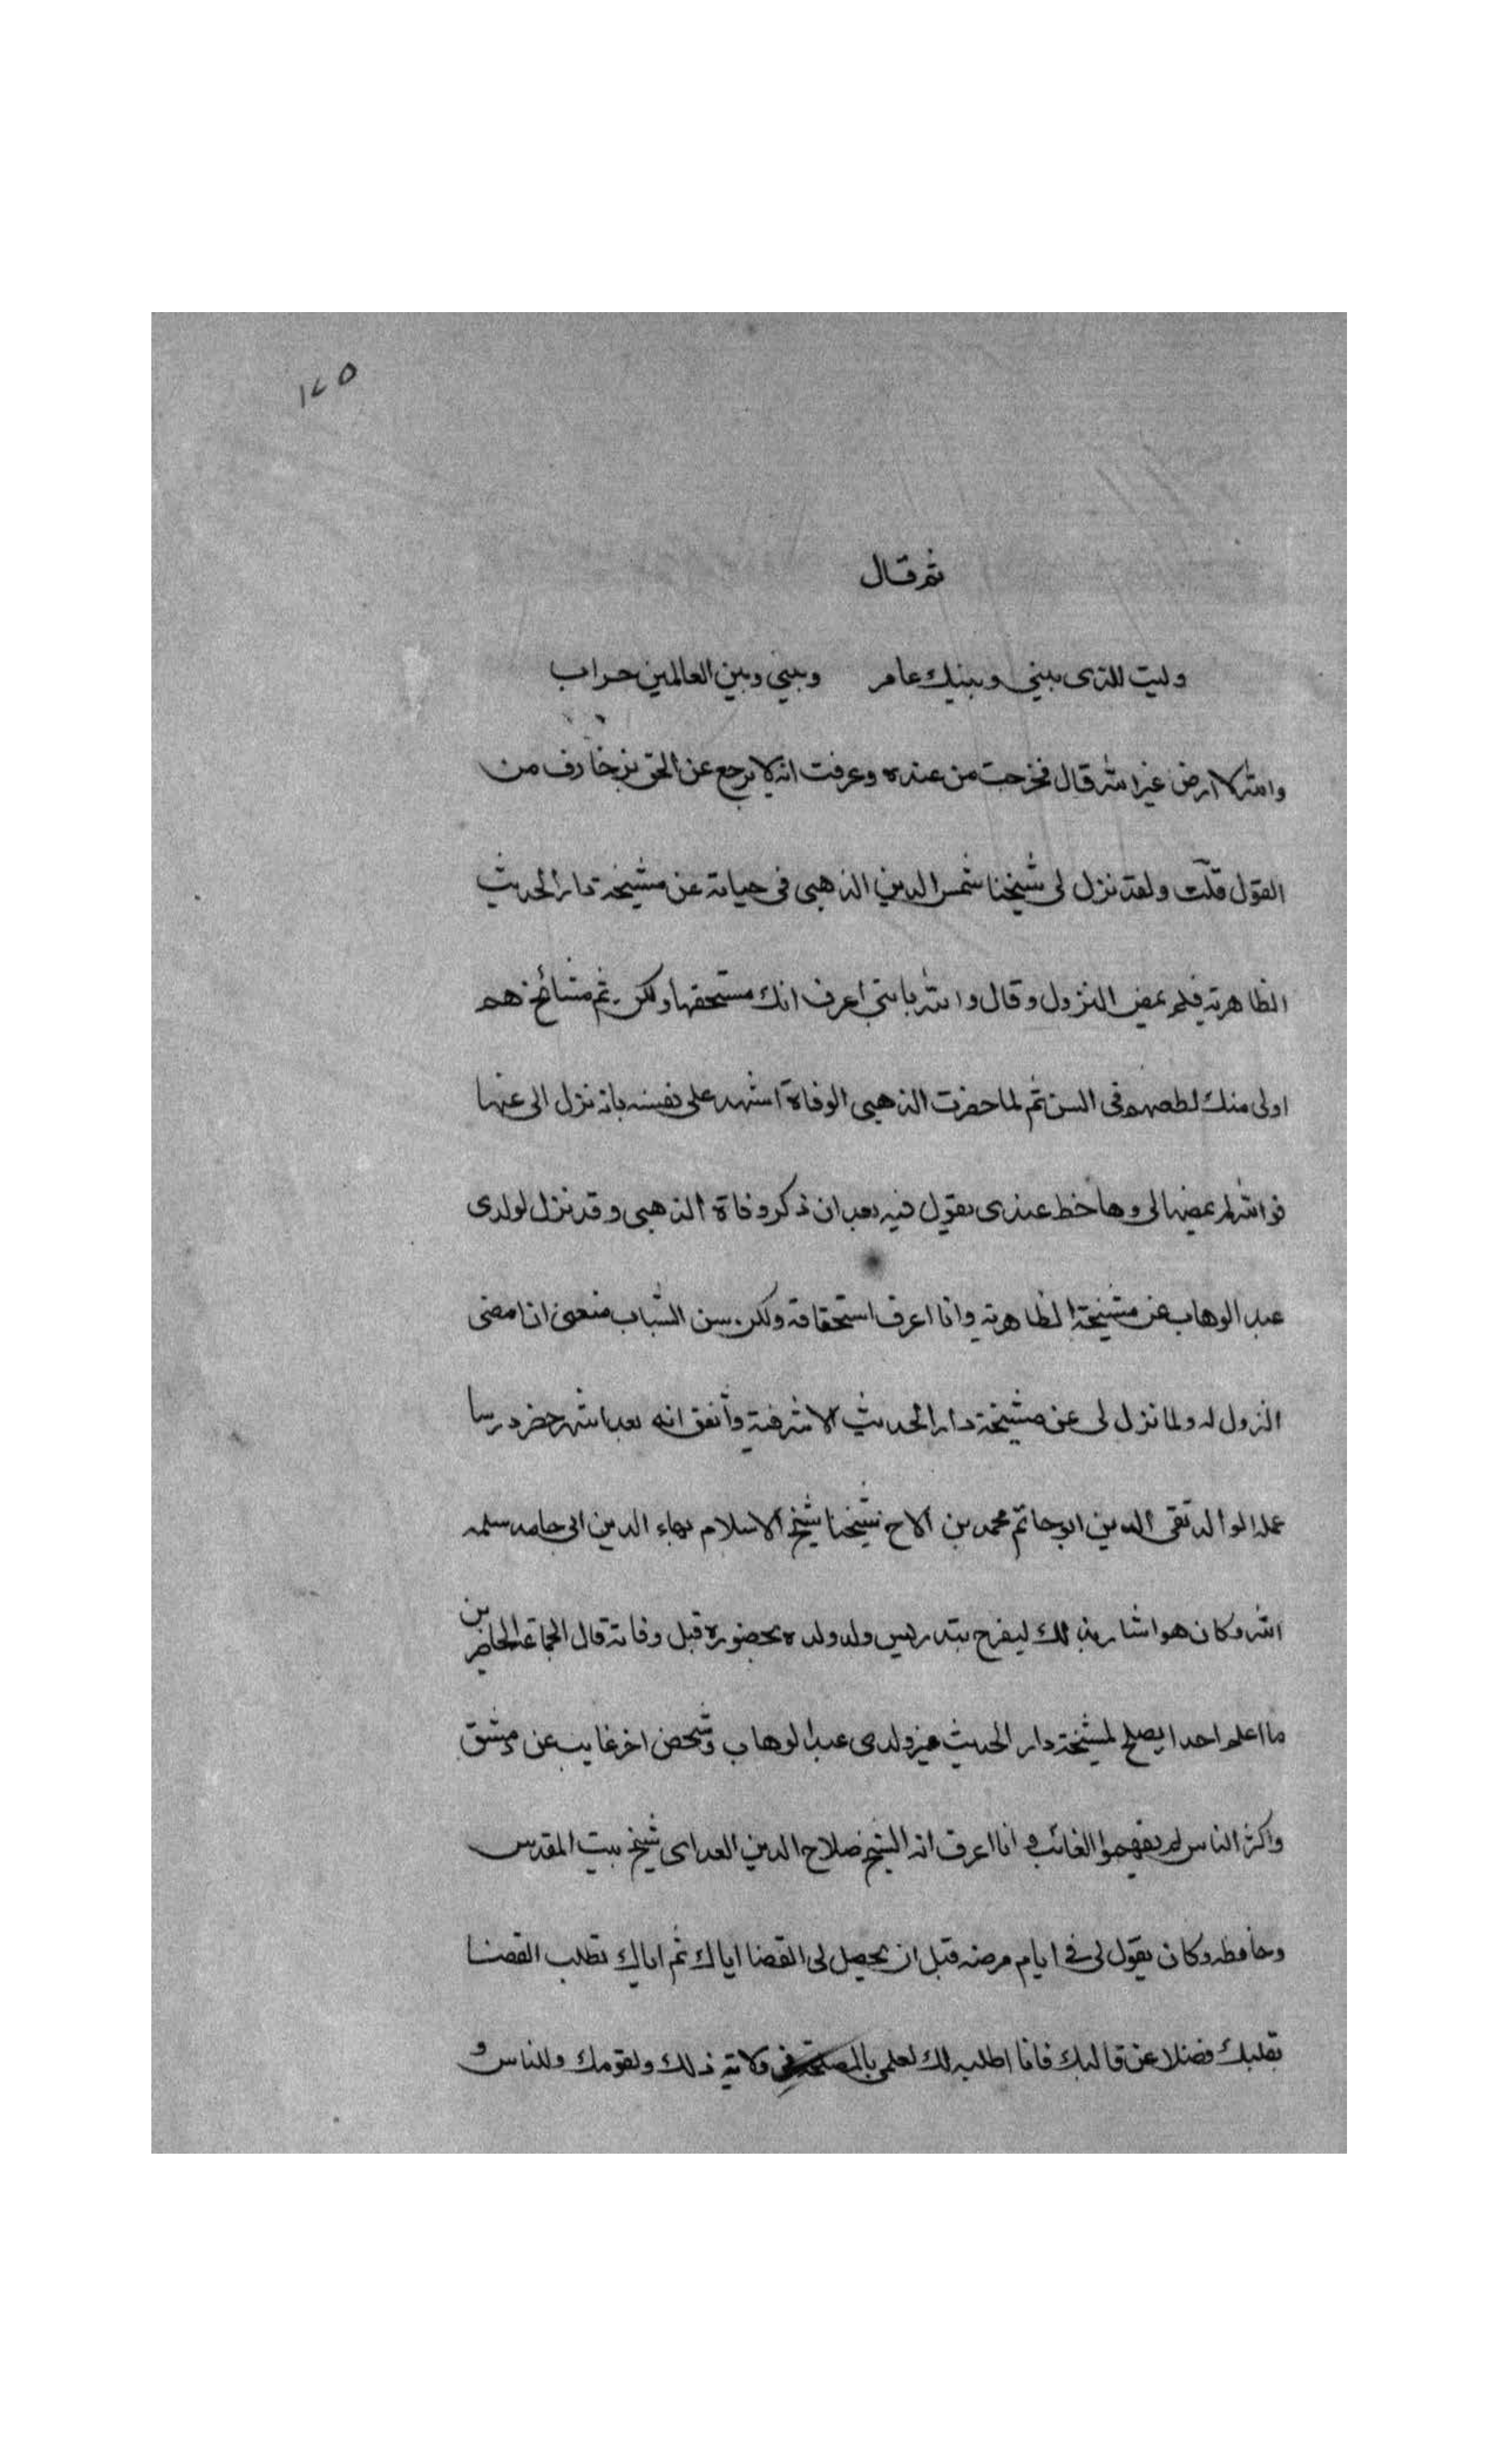 ١٢٥
ثم قال
وليت للذى بينى وبينك عامر وبينى وبين العالمين خراب
والله لا ارضى غير الله قال فخرجت من عنده وعرفت انه لا يرجع عن الحق بزخارف من
القول قلت ولقد نزل لى شيخنا شمس الدين الذهبى فى حياته عن مشيخة دار الحديث
الظاهرية فلم يمض النزول وقال والله يا بنى اعرف انك مستحقها ولكن ثم مشائخ هم
اولى منك لطعنهم فى السن ثم لما حضرت الذهبى الوفاة اشهد على نفسه بانه نزل الى عنها
فوالله لم يمضها لى وها خط عندى يقول فيه بعد ان ذكر وفاة الذهبى وقد نزل لولدى
عبد الوهاب عن مشيخة الظاهرية وانا اعرف استحقاقه ولكن سن الشباب منعنى ان امضى
النزول له ولما نزل لى عن مشيخة دار الحديث الاشرفية واتفق انه بعد اشهر حضر درسا
عمله الوالد تقى الدين ابو حاتم محمد بن الاخ شيخنا شيخ الاسلام بهاء الدين ابى حامد سلمه
الله وكان هو اشار بذلك ليفرح بتدريس ولد ولده بحضوره قبل وفاته قال الجماعة الحاضرين
ما اعلم احدا يصلح لمشيخة دار الحديث غير ولدى عبد الوهاب وشخص اخر غايب عن دمشق
واكثر الناس لم يفهموا الغائب وانا اعرف انه الشيخ صلاح الدين شيخ بيت المقدس
وحافظه وكان يقول لى فى ايام مرضه قبل ان يحصل لى القضا اياك ثم اياك تطلب القضا
بقلبك فضلا عن قالبك فانا اطلبه لك لعلمى بالمصلحة فى ولاية ذلك ولقومك وللناس و